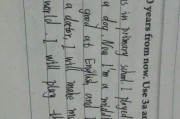 0 years from now. Use 3a a
is in primary school I played
a dog. Now I'm a middl
good at English, and I
a doctor, I will make mo
world. I will play th